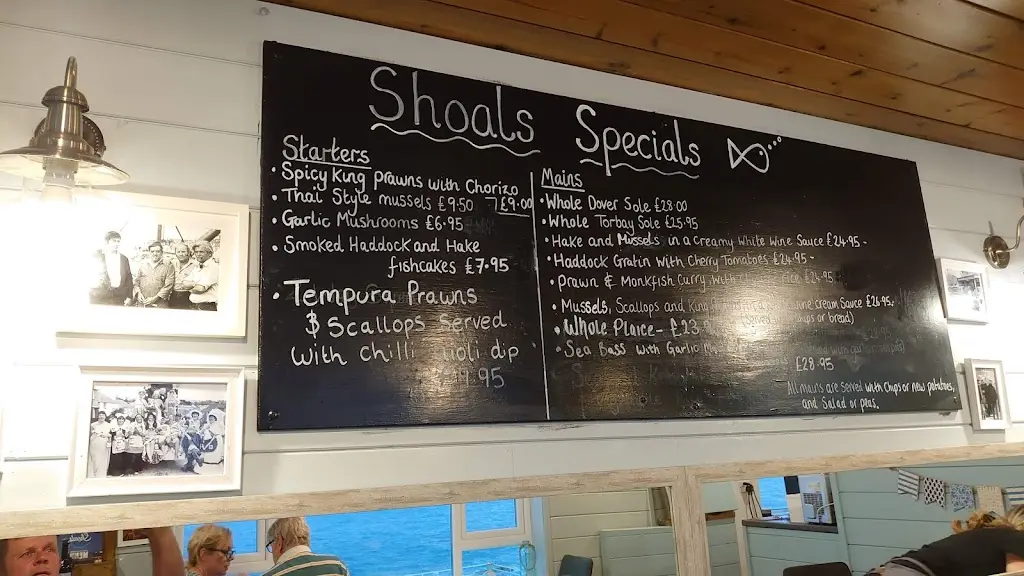 Shoals Specials
Starters
• Spicy King prawns with Chorizo
£9.00
• Thai Style mussels £9.50
• Garlic Mushrooms £6.95
• Smoked Haddock and Hake
fishcakes £7.95
• Tempura Prawns
& Scallops served
with chilli dip
95
Mains
• Whole Dover Sole £28.00
• Whole Torbay Sole £25.95
• Hake and Mussels in a Creamy White Wine Sauce £24.95
• Haddock Gratin with Cherry Tomatoes £24.95
• Prawn & Monkfish Curry with £24.95
• Mussels, Scallops and King Cream Sauce £26.95
or bread)
• Whole Plaice - £23
• Sea Bass with Garlic
£28.95
All mains are served with chips or new potatoes,
and Salad or peas.